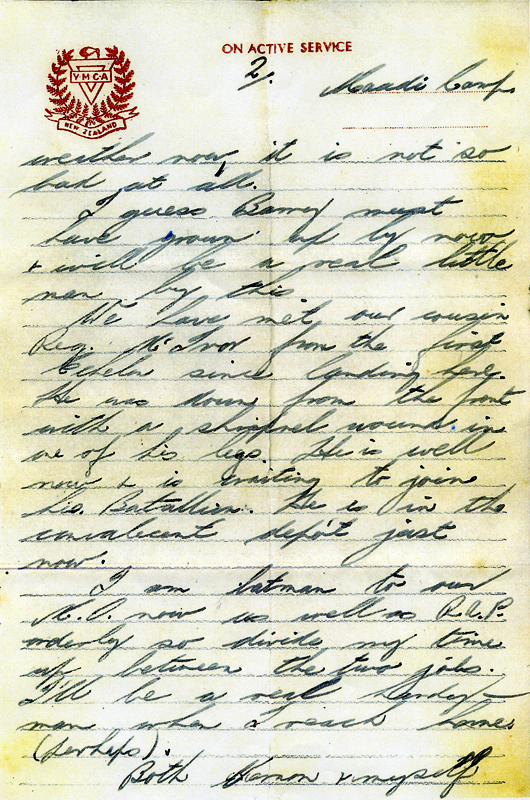 ON ACTIVE SERVICE
Y.M.C.A
NEW ZEALAND
2.
Maadi Camp
weather now, it is not so
bad at all.
I guess Barry must
have grown up by now
& will be a real little
man by this.
We have met our cousin
Reg. from the first
Echelon since landing here.
He was down from the front
with a shrapnel wound in
one of his legs. He is well
now & is waiting to join
his Batallion. He is in the
convalecent depot just
now.
I am batman to our
M.O. now as well as R.A.P.
orderly so divide my time
up between the two jobs.
I'll be a real handy-
man when I reach home
(perhaps).
Both Vernon & myself